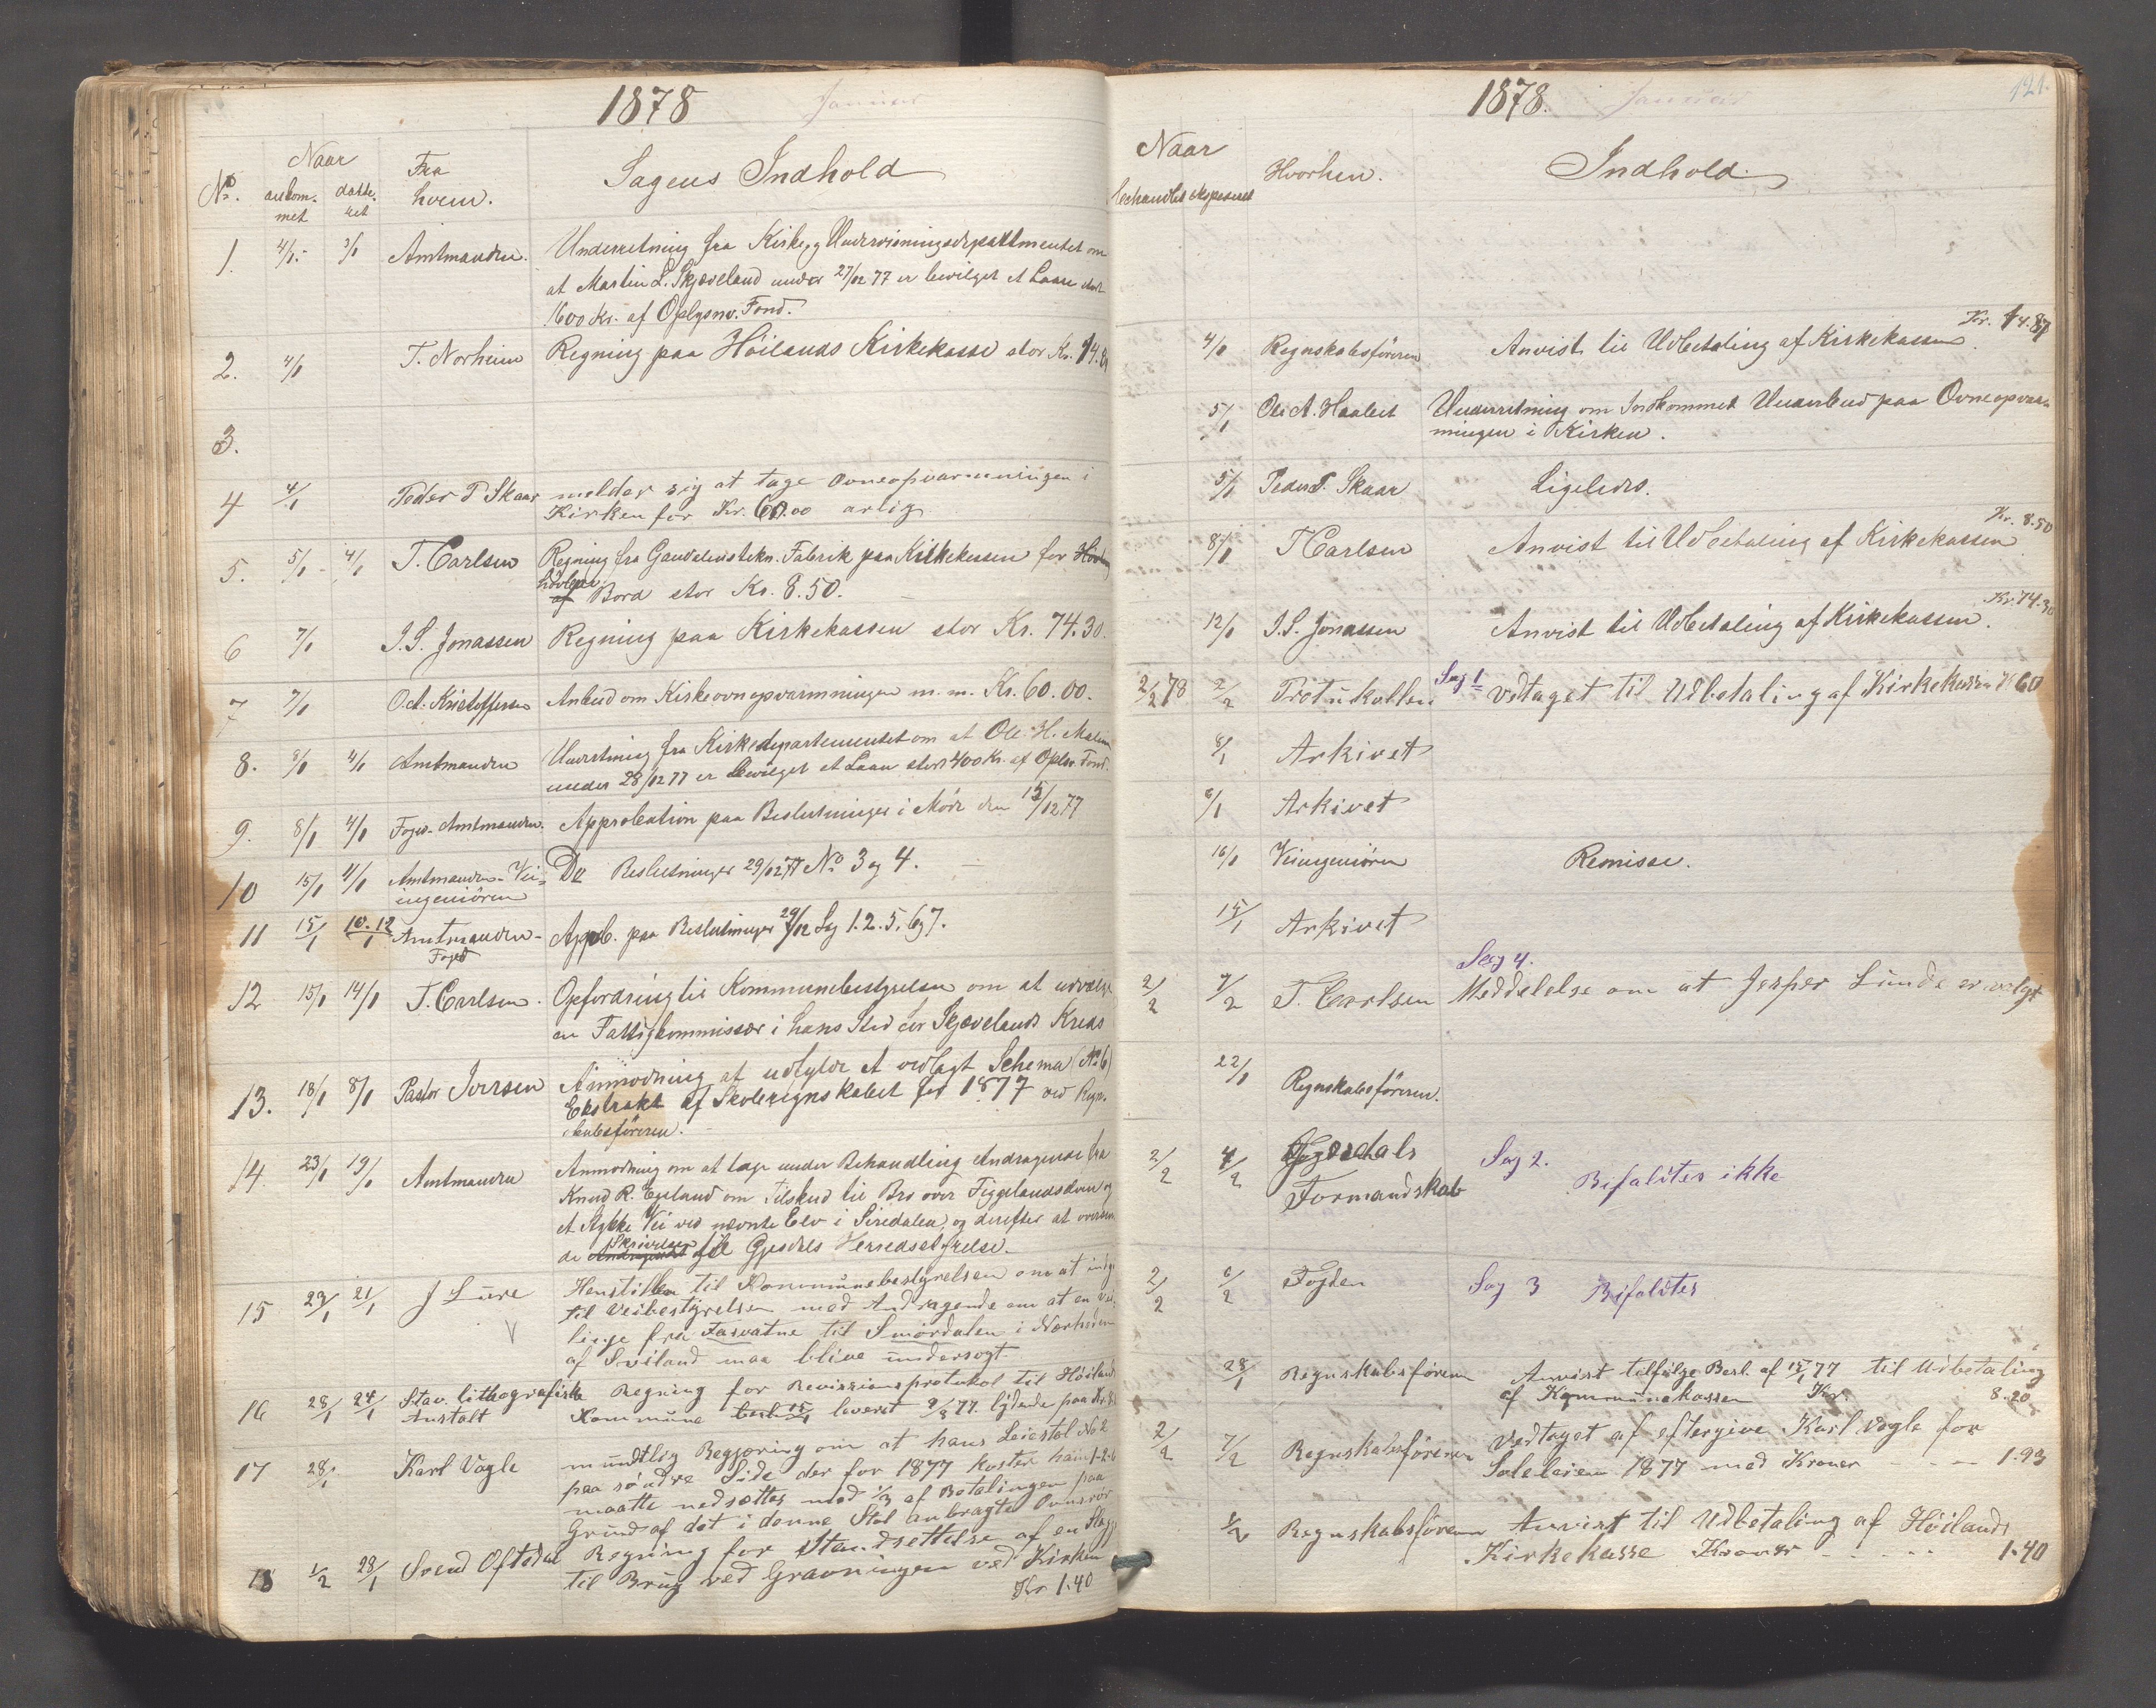 1878 Januar
Naar
No. ankom- datte- Fra Sagens Indhold
met ret hvem.
1. 4/1 3/1 Amtmanden. Underretning fra Kirke og Undervisningsdepartmentet om
at Martin L. Skjæveland under 27/12 77 er bevilget et Laan stort
1600 Kr. af Oplysnv. Fond.
2. 4/1 T. Norheim Regning paa Höilands Kirkekasse stor Kr. 14.87
3.
4 4/1 Peder P Skaar melder sig at tage Ovneopvarmningen i
Kirken for Kr. 60.00 arlig
5. 5/1 4/1 T. Carlsen Regning fra Gandalens tekn. Fabrik paa Kirkekassen for
hövlede af Bord stor Kr. 8.50.
6 7/1 J. S. Jonassen Regning paa Kirkekassen stor Kr. 74.30.
7 7/1 O. A. Kristoffersen Anbud om Kirkeovnopvarmningen m. m. Kr. 60.00.
8. 8/1 4/1 Amtmanden Underretning fra Kirkedepartementet om at Ole H.
under 28/12 77 er bevilget et Laan stort 400 Kr. af Opln. Fond.
9. 8/1 4/1 Foged-Amtmanden. Approbation paa Beslutninger i Möde den 15/12 77
10 15/1 4/1 Amtmanden-Vei- Do Beslutninger 29/12 77 No 3 og 4.
ingeniören
11 15/1 10.12/1 Amtmanden- Appb. paa Beslutninger 29/12 Sag 1.2.5.6 og 7.
Foged
12 15/1 14/1 T. Carlsen. Opfordring til Kommunebestyrelsen om at udvælge
en Fattigkommissær i hans Sted for Skjævelands Kreds
13. 18/1 8/1 Pastor Iversen Anmodning at udfylde et vedlagt Schema (No 6)
Ekstrakt af Skoleregnskabet for 1877 ved Regn-
skabsföreren.
14. 23/1 19/1 Amtmanden Anmodning om at tage under Behandling Andragende fra
Knud R. Egeland om Tilskud til Bro over Figgelandsaaen og
et Stykke Vei ved nævnte Elv i Siredalen, og derefter at oversen-
de Andragendet Skrivelsen til Gjesdals Herredsstyrelse.
15 23/1 21/1 J Lure Henstiller til Kommunebestyrelsen om at indgaa
til Veibestyrelsen med Andragende om at en Vei-
linje fra Tasvatne til Smördalen i Nærheden
af Sviland maa blive undersogt.
16 28/1 24/1 Stav. lithografiske Regning for Revisionsprotokol til Höilands
Anstalt Kommune leveret 77. lydende paa Kr.
17 28/1 Karl Vagle mundtlig Begjæring om at hans Leiestol No 2
paa söndre Side der for 1877 koster ham
maatte nedsættes med 1/3 af Betalingen paa
Grund af det i denne Stol anbragte Ovnsrör
18 1/2 28/1 Svend Oftedal Regning for Standsettelse af en
til Brug ved Gravningen ved Kirken
Kr 1.40
1878. Januar 121.
Naar
behandlet ekspederet Hvorhen. Indhold
4/1 Regnskabsföreren Anvist til Udbetaling af Kirkekassen. Kr. 14.87
5/1 Ole A. Haabet Underretning om Indkommet Underbud paa Ovneopvar-
mningen i Kirken.
5/1 Peder P. Skaar Ligeledes.
8/1 T Carlsen Anvist til Udbetaling af Kirkekassen Kr. 8.50
12/1 J. S. Jonassen Anvist til Udbetaling af Kirkekassen. Kr. 74.30
2/2 78 2/2 Protokollen Sag 1 Vdtaget til Udbetaling af Kirkekassen Kr 60
8/1 Arkivet
8/1 Arkivet
16/1 Veiingeniören Remisse.
15/1 Arkivet
Sag 4.
2/2 7/2 T. Carlsen Meddelelse om at Jesper Lunde er valgt
22/1 Regnskabsföreren.
2/2 4/2 Gjesdals Sag 2.
Formandskab Bifaldtes ikke
2/2 6/2 Fogden Sag 3 Bifaldtes
28/1 Regnskabsföreren Anvist tilfölge Besl. af 15/1 77 til Udbetaling
af Kommunekassen Kr. 8.20
2/2 7/2 Regnskabsföreren Vedtaget at eftergive Karl Vagle for
Soleleien 1877 med Kroner - - - 1.93
1/2 Regnskabsföreren Anvist til Udbetaling af Höilands
Kirkekasse Kroner - - - - - 1.40